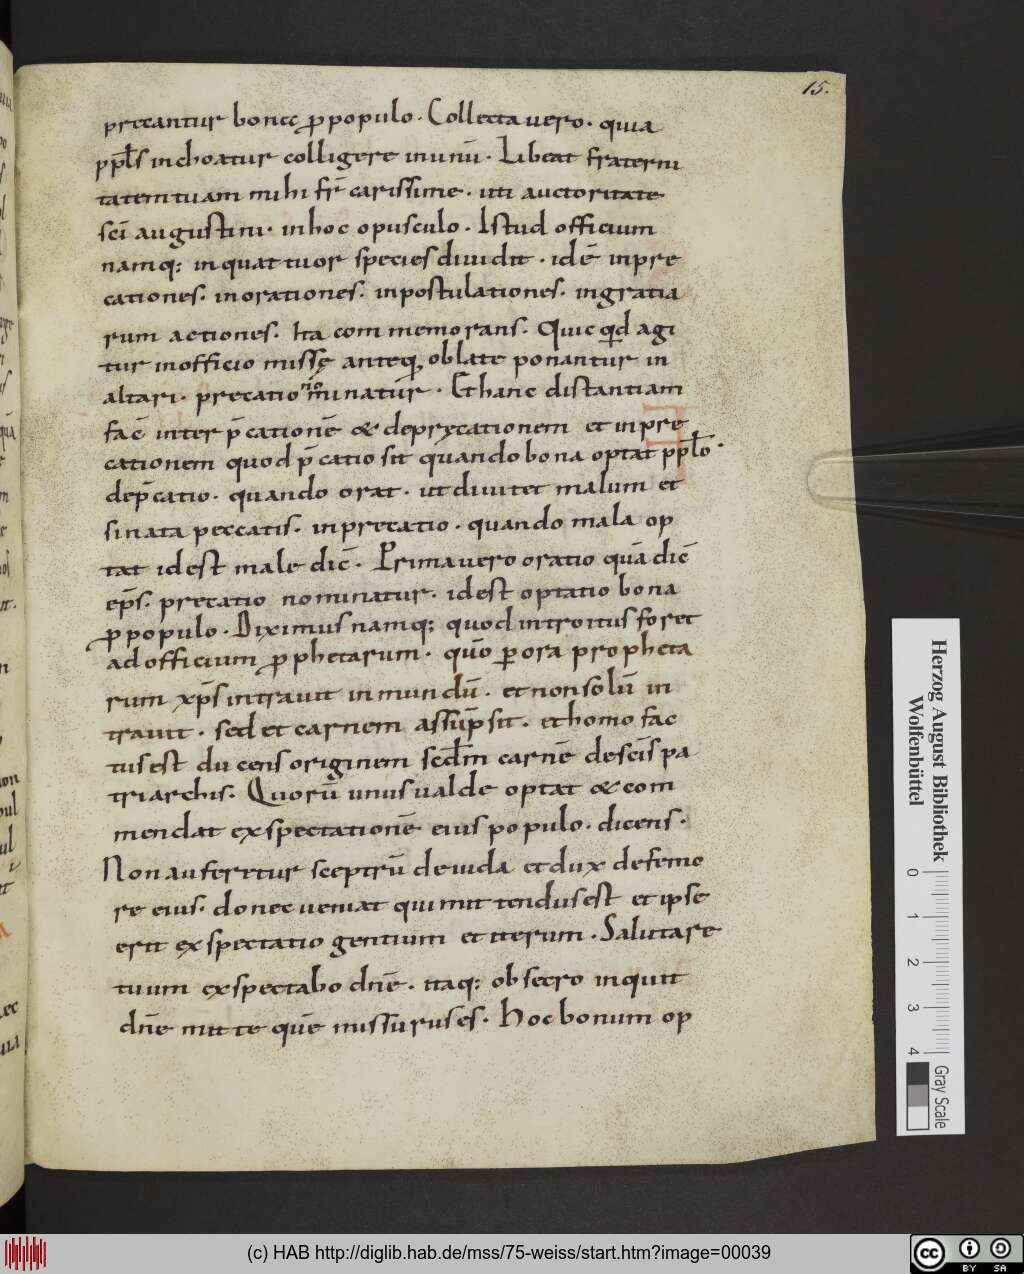 15.
precantur bonee p populo. Collecta vero. quia
ppl̄s inchoatur colligere in unū. Libeat fraterni
tatem tuam mihi fr̄ carissime. uti auctoritate
sc̄i augustini. in hoc opusculo. Istud officium
namq; in quattuor species diuidit. idē in pre
cationes. in orationes. in postulationes. in gratia
rum actiones. Ita commemorans. Quicqd agi
tur in officio missę anteq, oblate ponantur in
altari. precatio nominatur. Et hanc distantiam
fac̄ inter p̄cationē & deprecationem et in pre
cationem quod p̄catio sit quando bona optat ppl̄o.
dep̄catio. quando orat. ut diuitet malum et
sinata peccatis. inprecatio. quando mala op
tat id est male dic̄. Prima vero oratio quā dic̄
ep̄s. precatio nominatur. id est optatio bona
p populo. Diximus namq; quod introitus foret
ad officium pphetarum. quō p ora propheta
rum xp̄s intrauit in mundū. et non solū in
trauit. sed et carnem assūpsit. et homo fac
tus est ducens originem scd̄m carnē de sc̄is pa
triarchis. Quorū unus ualde optat & com
mendat exspectationē eius populo. dicens.
Non auferetur sceptrū de iuda et dux de femo
re eius. donec ueniat qui mittendus est et ipse
erit exspectatio gentium et iterum. Salutare
tuum exspectabo dn̄e. itaq; obsecro inquit
dn̄e mitte quē missurus es. Hoc bonum op
Herzog August Bibliothek
Wolfenbüttel
0 1 2 3 4
Gray Scale
(c) HAB http://diglib.hab.de/mss/75-weiss/start.htm?image=00039
cc BY SA